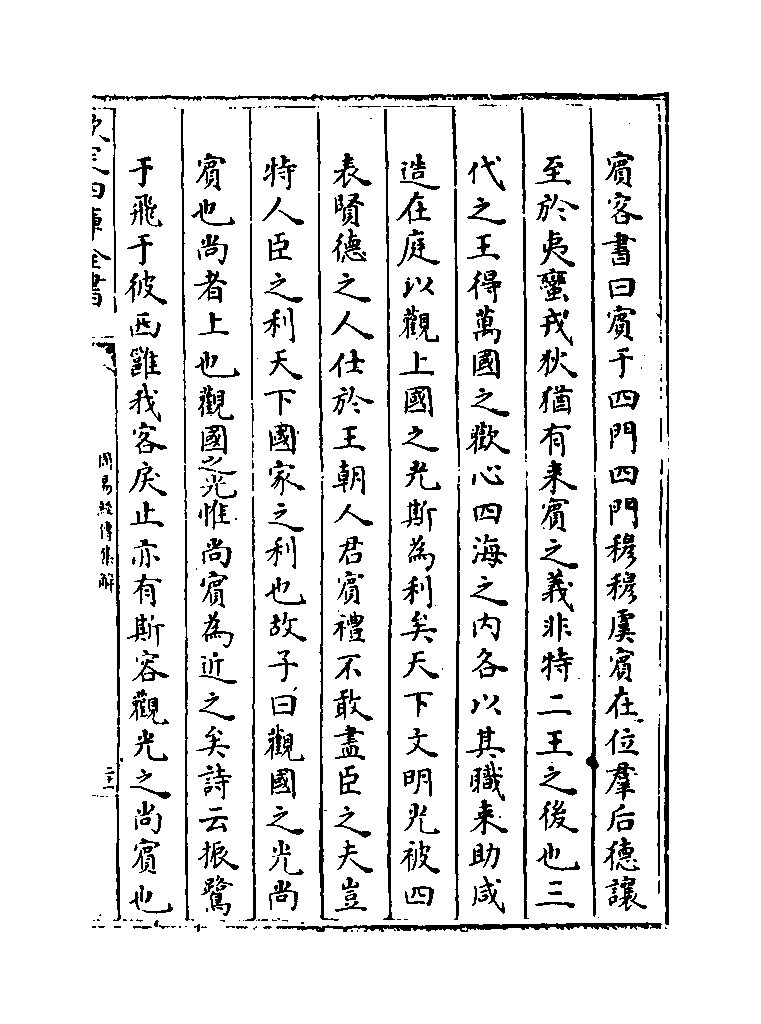 賓客書曰賓于四門四門穆穆虞賓在位羣后德讓
至於夷蠻戎狄猶有来賓之義非特二王之後也三
代之王得萬國之歡心四海之内各以其職来助咸
造在庭以觀上國之光斯為利矣天下文明光被四
表賢德之人仕於王朝人君賓禮不敢盡臣之夫豈
特人臣之利天下國家之利也故子曰觀國之光尚
賓也尚者上也觀國之光惟尚賓為近之矣詩云振鷺
于飛于彼西雝我客戾止亦有斯容觀光之尚賓也
欽定四庫全書
周易經傳集解